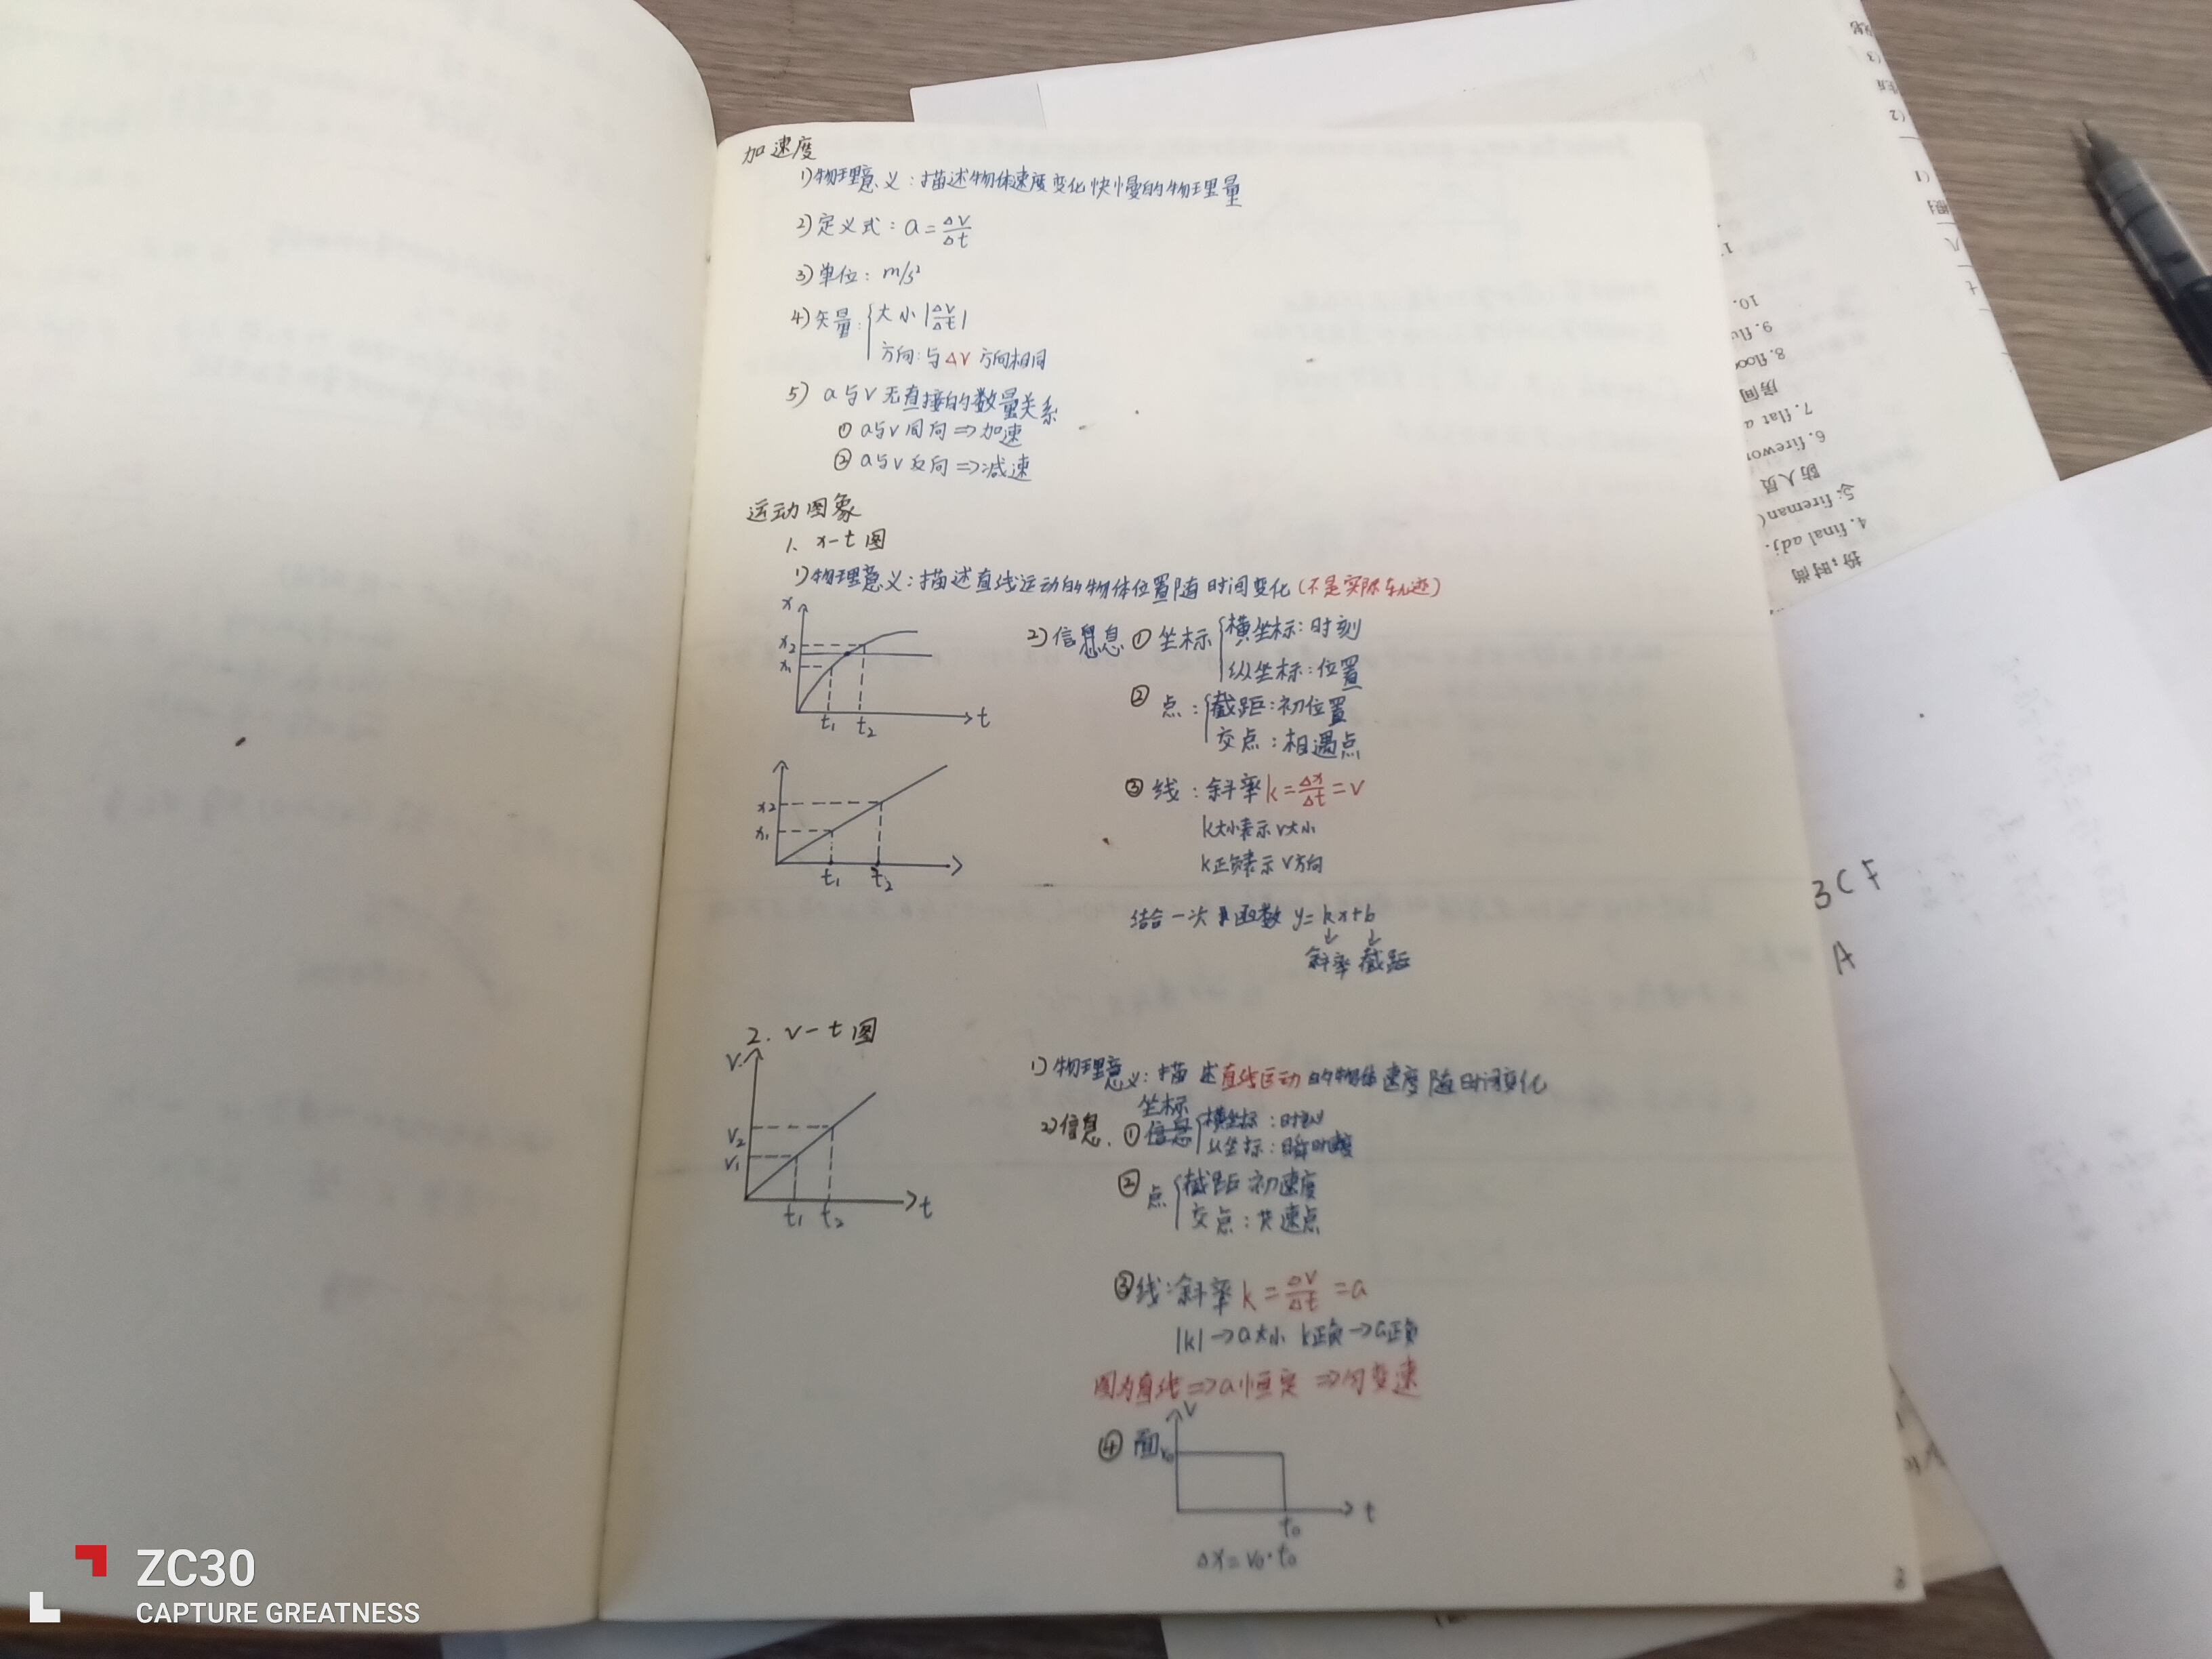 加速度
1)物理意义:描述物体速度变化快慢的物理量
2)定义式:a=Δv/Δt
3)单位:m/s²
4)矢量:大小|Δv/Δt|
方向:与Δv方向相同
5) a与v无直接的数量关系
① a与v同向⇒加速
② a与v反向⇒减速
运动图象
1. x-t图
1)物理意义:描述直线运动的物体位置随时间变化(不是实际轨迹)
x
x₂
x₁
t₁ t₂ t
2)信息 ①坐标 横坐标:时刻
纵坐标:位置
② 点:截距:初位置
交点:相遇点
x₂
x₁
t₁ t₂
③ 线:斜率k=Δx/Δt=v
k大小表示v大小
k正负表示v方向
结合一次函数 y=kx+b
斜率 截距
2. v-t图
v
v₂
v₁
t₁ t₂ t
1)物理意义:描述直线运动的物体速度随时间变化
坐标
2)信息. ①信息 横坐标:时刻
纵坐标:瞬时速度
② 点 截距:初速度
交点:共速点
③线:斜率k=Δv/Δt=a
|k|→a大小 k正负→a正负
图为直线⇒a恒定⇒匀变速
④ 面
v
v₀
t₀ t
Δx=v₀·t₀
3CF
A
10.
9. flu
8. floo
房间
7. flat a
6. firewor
防人员
5. fireman(
4. final adj.
扮;时尚
ZC30
CAPTURE GREATNESS